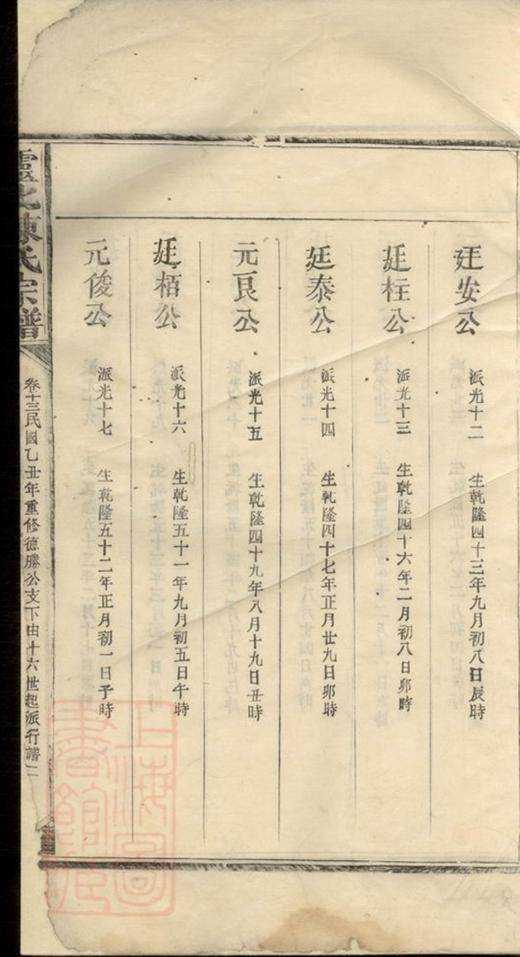 廷安公 派光十二 生乾隆四十三年九月初八日辰時
廷柱公 派光十三 生乾隆四十六年二月初八日卯時
廷泰公 派光十四 生乾隆四十七年正月廿九日卯時
元良公 派光十五 生乾隆四十九年八月十九日丑時
廷栢公 派光十六 生乾隆五十一年九月初五日午時
元俊公 派光十七 生乾隆五十二年正月初一日子時
陳氏宗譜 卷十三民國乙丑年重修德勝公支下由十六世起派行譜二
上海圖書館藏